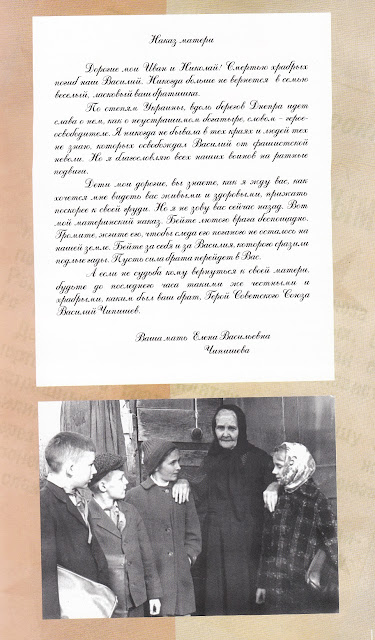 Наказ матери
Дорогие мои Иван и Николай! Смертью храбрых
погиб наш Василий. Никогда больше не вернется в семью
веселый, ласковый ваш братишка.
По степям Украины, вдоль берегов Днепра идет
слава о нем, как о неустрашимом богатыре, словом - герое-
освободителе. Я никогда не бывала в тех краях и людей тех
не знаю, которых освобождал Василий от фашистской
неволи. Но я благословляю всех наших воинов на ратные
подвиги.
Дети мои дорогие, вы знаете, как я жду вас, как
хочется мне видеть вас живыми и здоровыми, прижать
поскорее к своей груди. Но я не зову вас сейчас назад. Вот
мой материнский наказ. Бейте лютого врага беспощадно.
Громите, жгите его, чтобы следа его поганого не осталось на
нашей земле. Бейте за себя и за Василия, которого сразили
подлые гады. Пусть сила брата перейдет в Вас.
А если не судьба кому вернуться к своей матери,
будьте до последнего часа такими же честными и
храбрыми, каким был ваш брат, Герой Советского Союза
Василий Чипишев.
Ваша мать Елена Васильевна
Чипишева